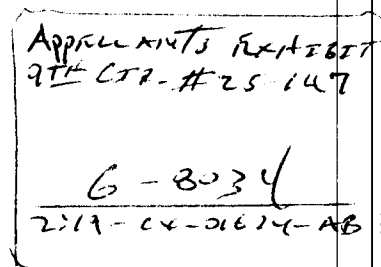 APPELLANTS EXHIBIT
9TH CIR. #25-147
6-8034
2:19-CV-01624-AB